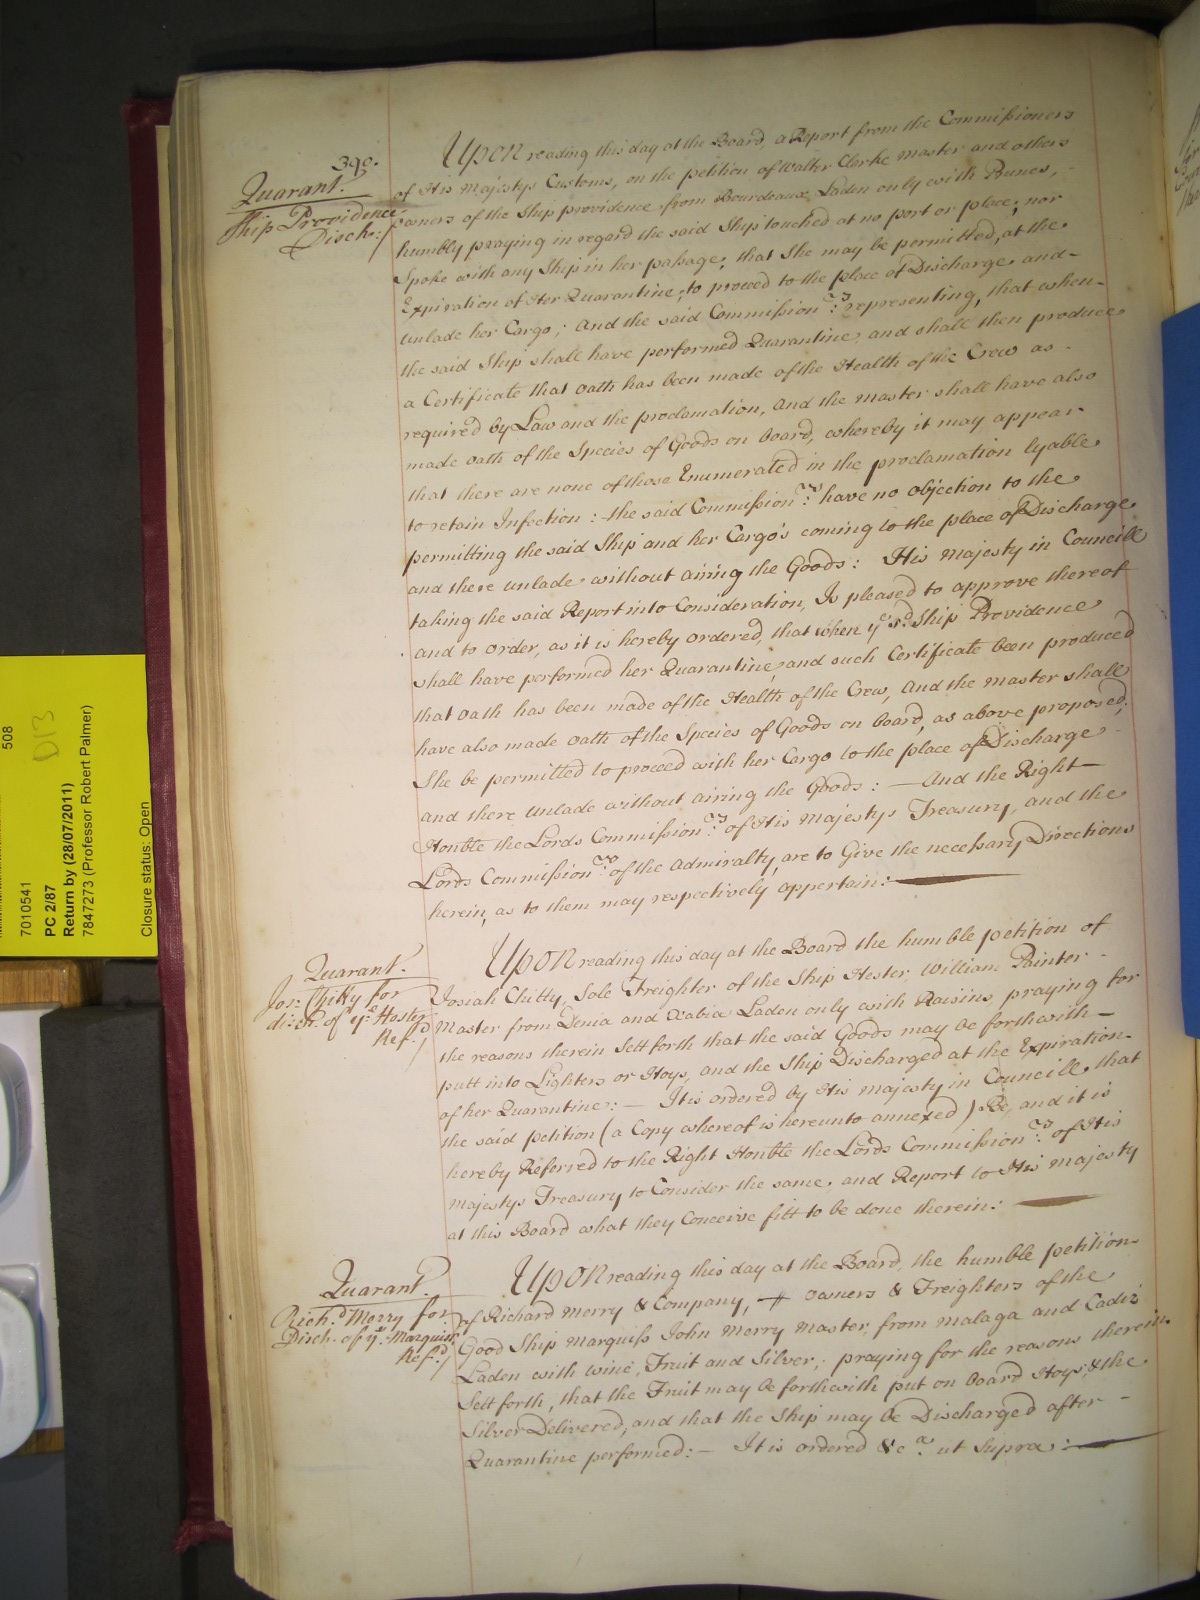 390.
Quarant.
Ship Providence
Disch:/
Upon reading this day at the Board, a Report from the Commissioners
of His Majestys Customs, on the petition of Walter Clerke Master and others
owners of the Ship providence from Bourdeaux Laden only with Prunes,
humbly praying in regard the said Ship touched at no port or place, nor
Spoke with any Ship in her passage, that She may be permitted, at the
Expiration of Her Quarantine, to proceed to the place of Discharge and
unlade her Cargo; And the said Commission.rs representing, that when
the said Ship shall have performed Quarantine, and shall then produce
a Certificate that oath has been made of the Health of the Crew as
required by Law and the proclamation, And the Master shall have also
made oath of the Species of Goods on board, whereby it may appear
that there are none of those Enumerated in the proclamation lyable
to retain Infection: the said Commission.rs have no objection to the
permitting the said Ship and her Cargo's coming to the place of Discharge
and there unlade without airing the Goods: His Majesty in Councill
taking the said Report into Consideration, Is pleased to approve thereof
and to order, as it is hereby ordered, that when ye sd. Ship Providence
shall have performed her Quarantine, and such Certificate been produced
that oath has been made of the Health of the Crew, And the Master shall
have also made oath of the Species of Goods on board, as above proposed;
She be permitted to proceed with her Cargo to the place of Discharge
and there unlade without airing the Goods: — And the Right
Honble the Lords Commission.rs of His Majestys Treasury, and the
Lords Commission.rs of the Admiralty, are to Give the necessary Directions
herein, as to them may respectively appertain:
Quarant.
Jos: Chitty for
disch. of ye. Hester
Ref.d/
Upon reading this day at the Board the humble petition of
Josiah Chitty, Sole Freighter of the Ship Hester, William Painter
Master from Denia and Xabia Laden only with Raisins, praying for
the reasons therein Sett forth that the said Goods may be forthwith
putt into Lighters or Hoys, and the Ship Discharged at the Expiration
of her Quarantine: — It is ordered by His Majesty in Councill, that
the said petition (a Copy whereof is hereunto annexed) Be, and it is
hereby Referred to the Right Honble the Lords Commission.rs of His
Majestys Treasury to Consider the same, and Report to His Majesty
at this Board what they Conceive fitt to be done therein:
Quarant.
Rich.d Merry for
Disch. of ye. Marquiss
Ref.d/
Upon reading this day at the Board, the humble petition
of Richard Merry & Company, owners & Freighters of the
Good Ship Marquiss John Merry Master, from Malaga and Cadiz
Laden with wine, Fruit and Silver; praying for the reasons therein
Sett forth, that the Fruit may be forthwith put on board Hoys, & the
Silver Delivered, and that the Ship may be Discharged after
Quarantine performed: — It is ordered &c.a ut Supra:
508
D13
7010541
PC 2/87
Return by (28/07/2011)
7847273 (Professor Robert Palmer)
Closure status: Open